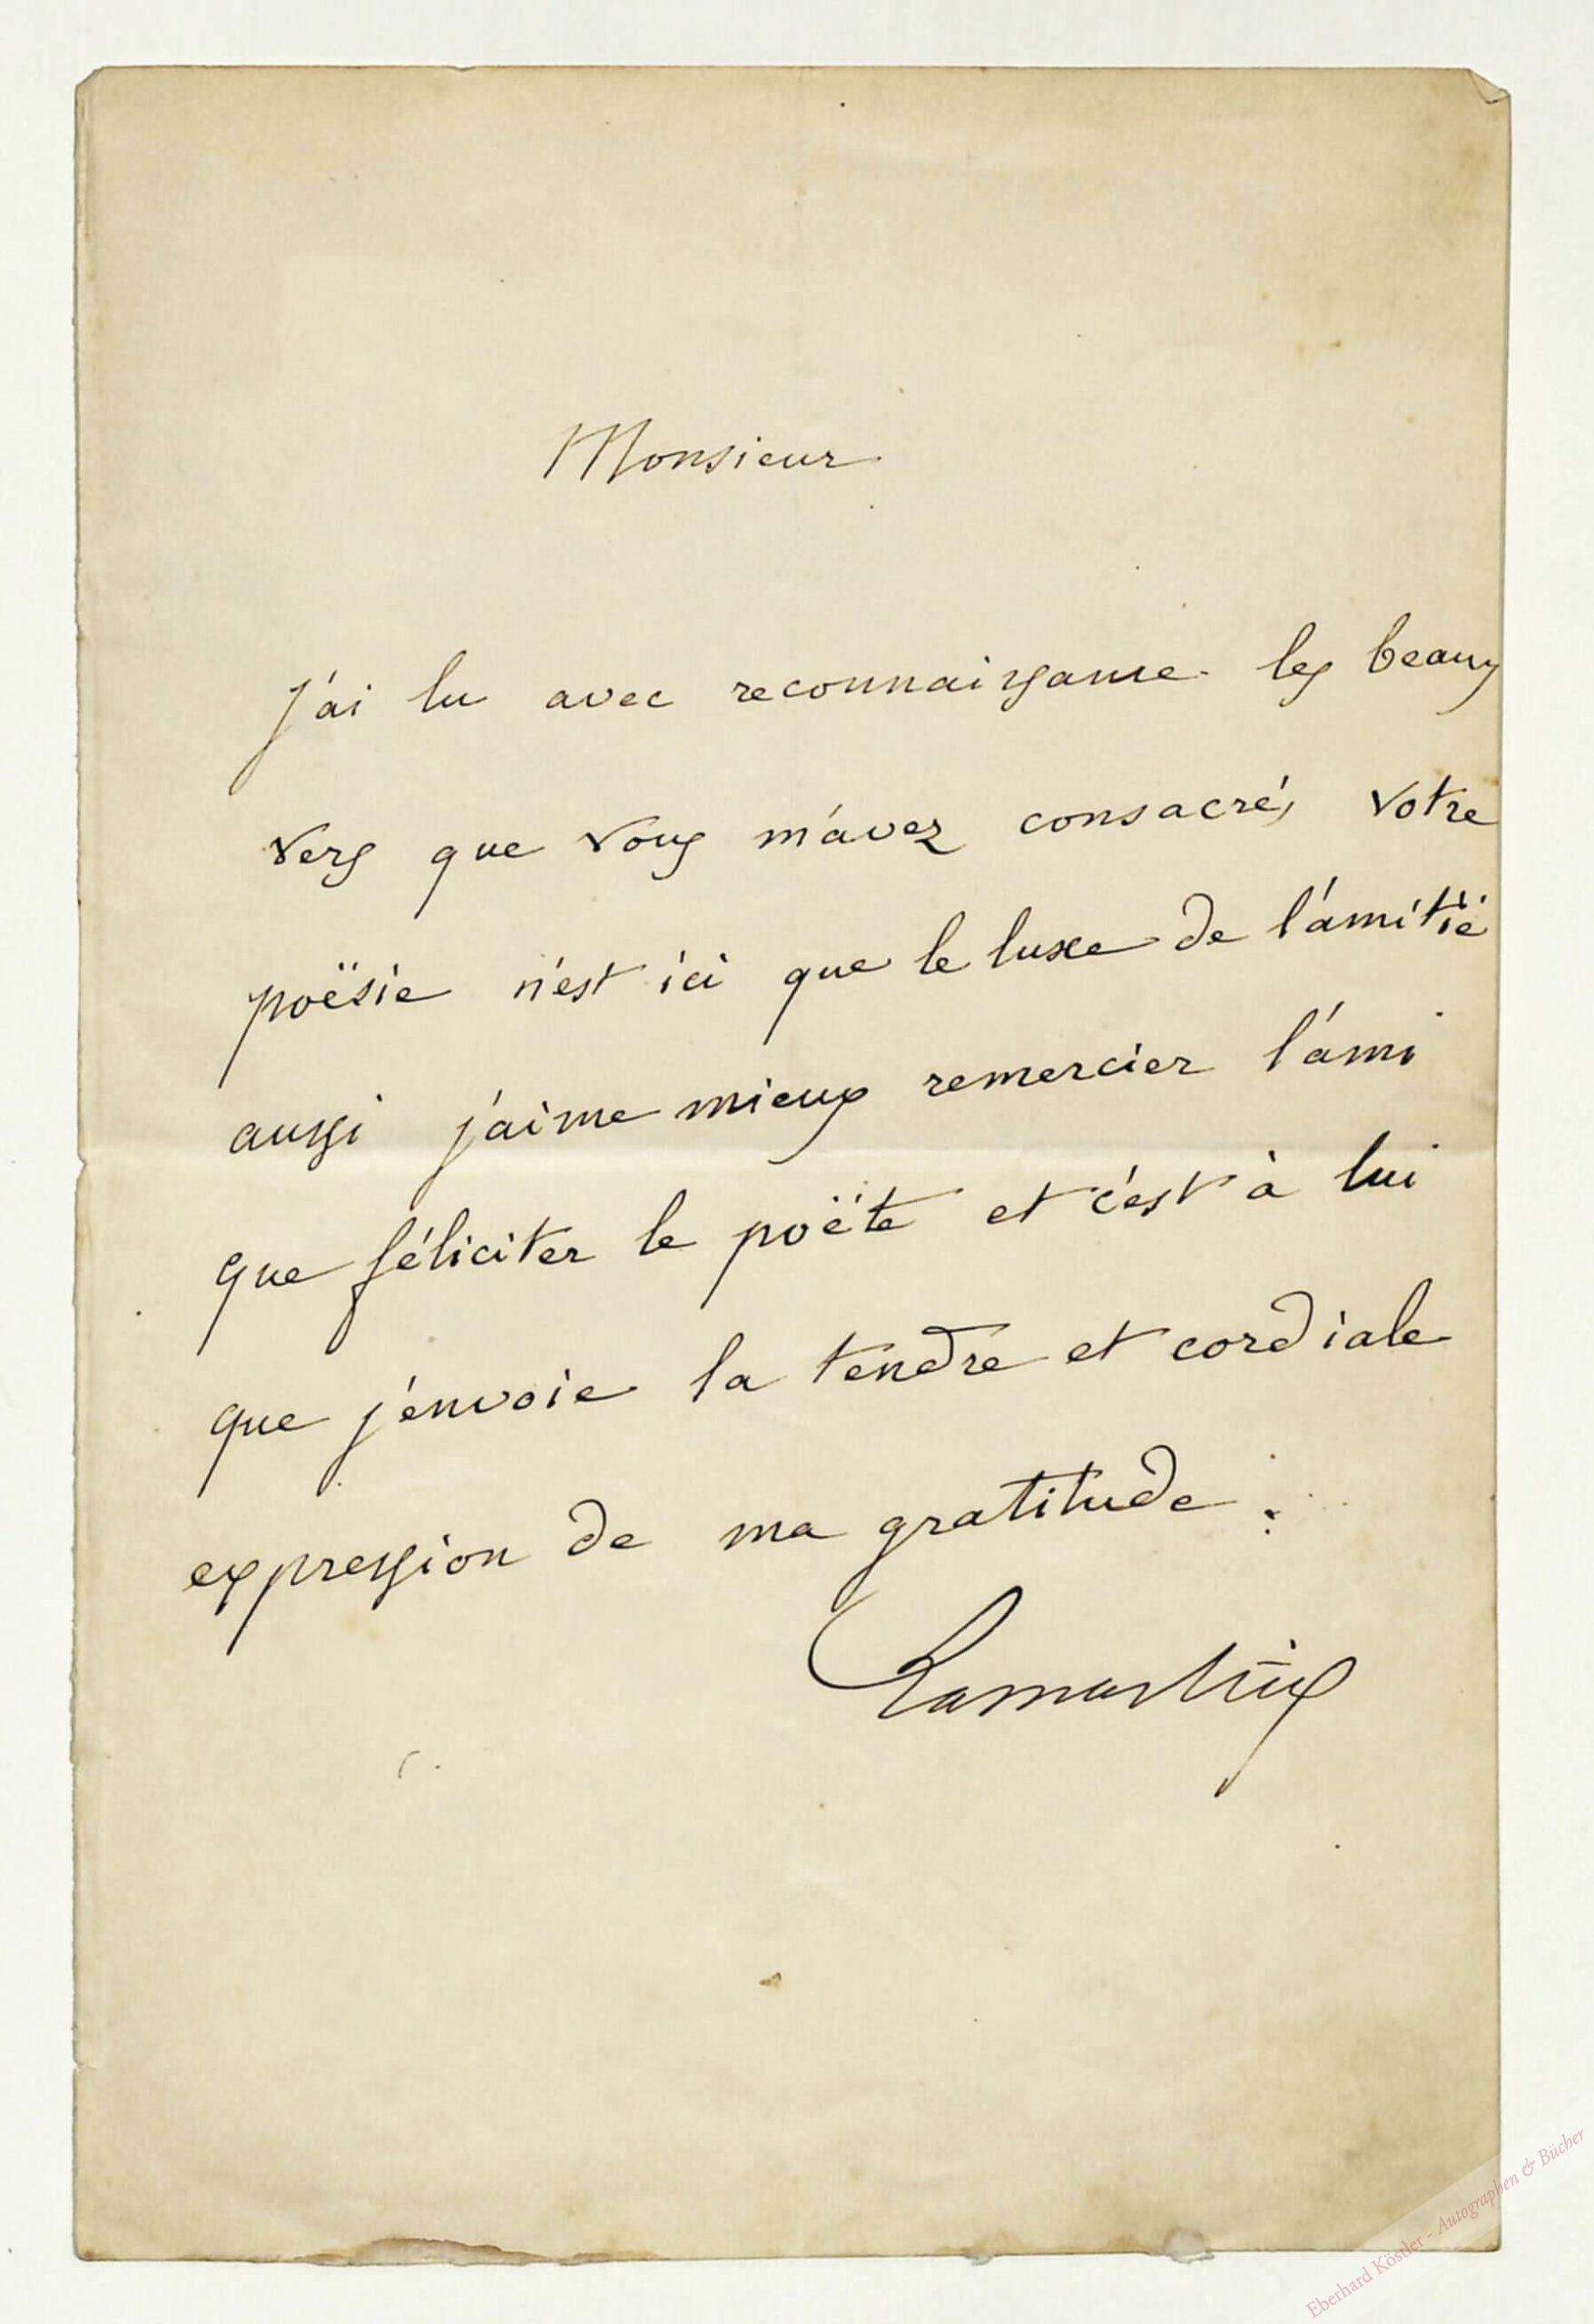 Monsieur
J'ai lu avec reconnaissance les beaux
vers que vous m'avez consacrés votre
poësie n'est ici que le luxe de l'amitié
aussi j'aime mieux remercier l'ami
que féliciter le poëte et c'est à lui
que j'envoie la tendre et cordiale
expression de ma gratitude.
Lamartine
Eberhard Köstler - Autographen & Bücher